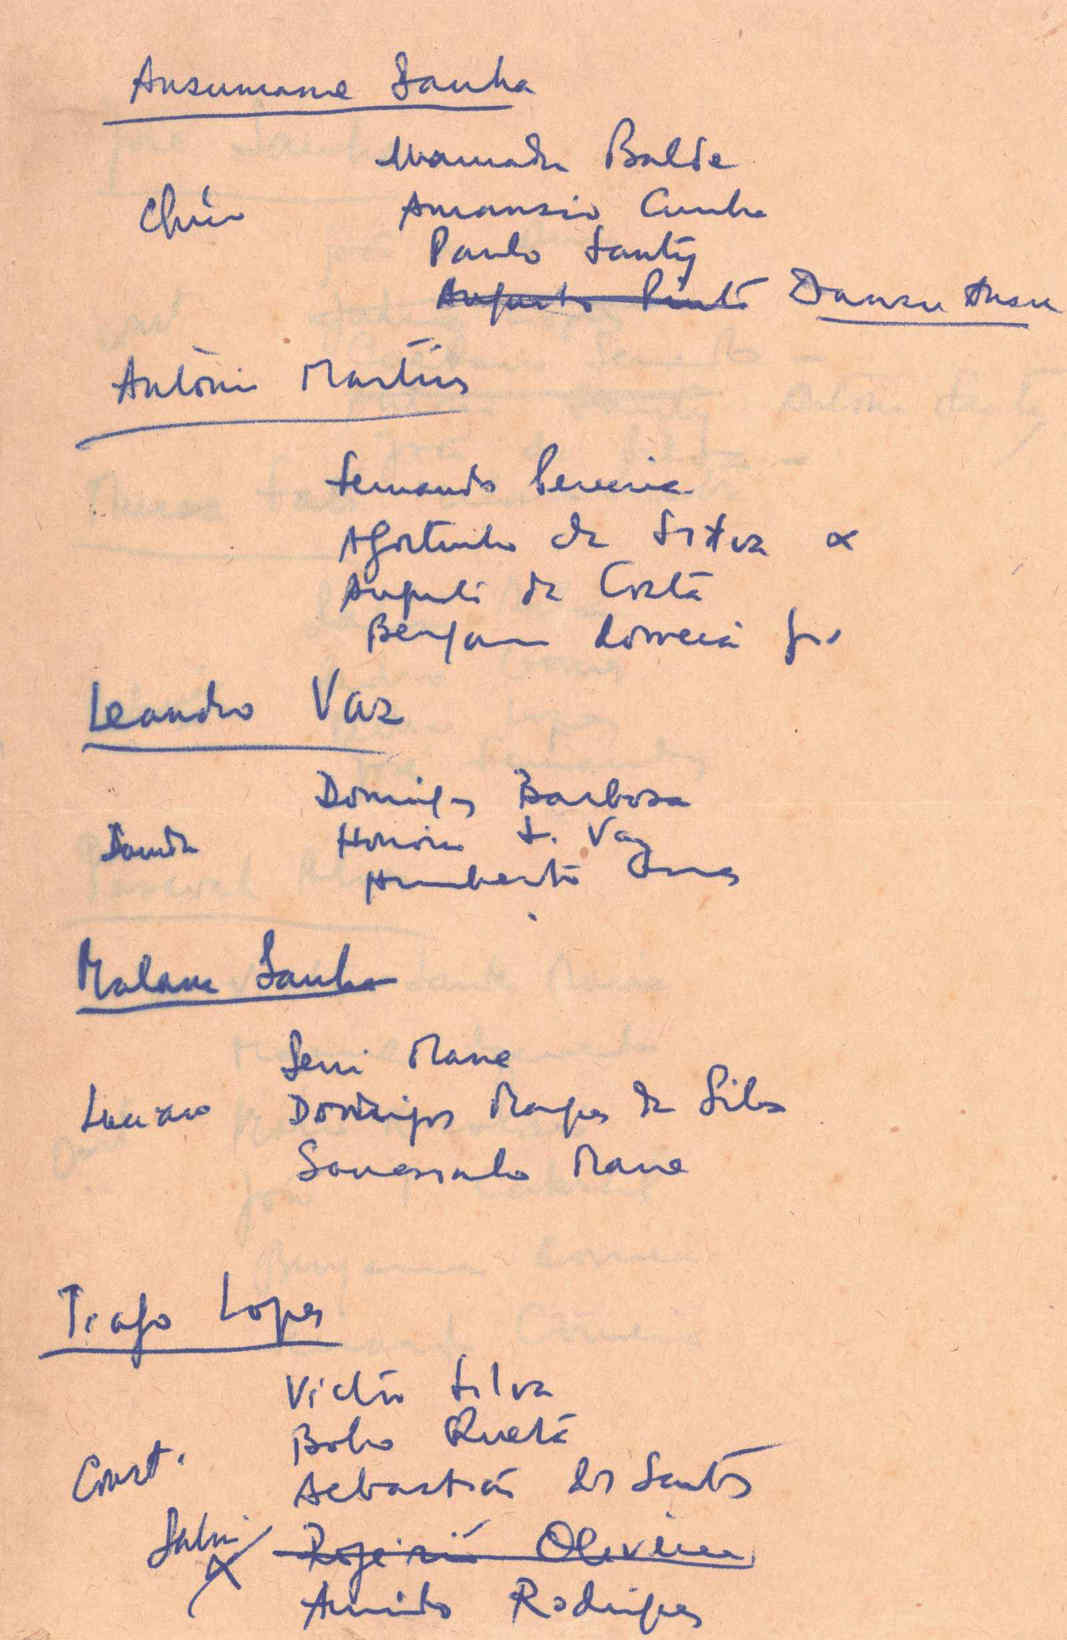 Ansumane Sanha
Mamadu Balde
Chico Amansio Cunha
Paulo Santy
Augusto Pinto Dansu Ansu
António Martins
Fernando Pereira
Agostinho da Silva α
Augusto da Costa
Benjam Correia
Leandro Vaz
Domingos Barbosa
Honorio F. Vaz
Humberto
Malam Sanha
Seni Mane
Luciano Domingos Marques da Silva
Mane
Tiago Lopes
Victor Silva
Bobo Quetá
Const. Sebastião dos Santos
Rogerio Oliveira
Armindo Rodrigues